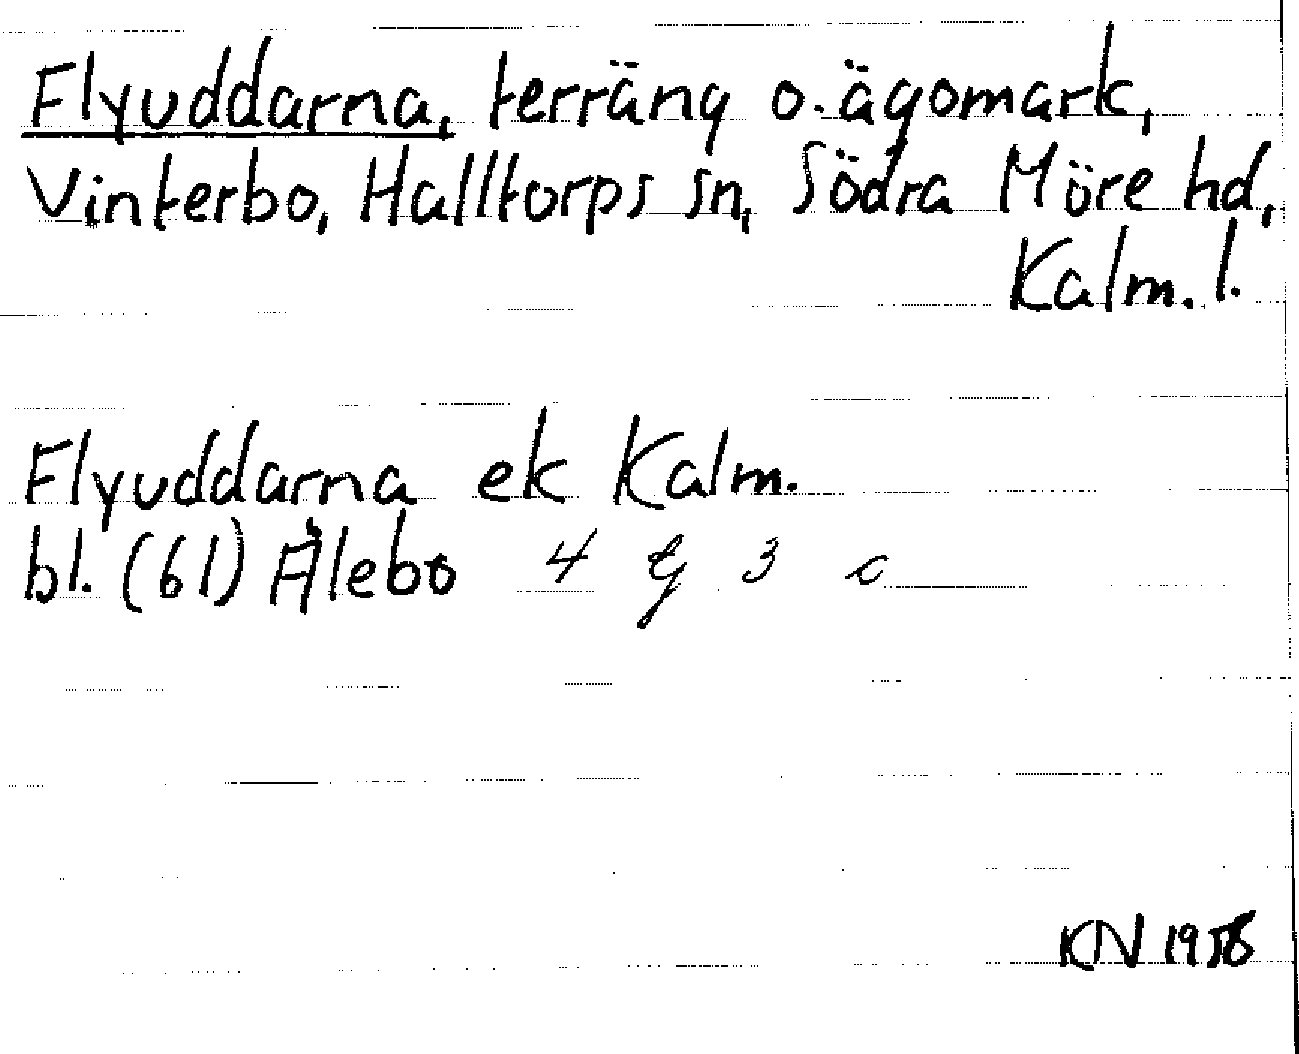 Flyuddarna, terräng o. ägomark,
Vinterbo, Halltorps sn, Södra Möre hd,
Kalm. l.
Flyuddarna ek Kalm.
bl. (61) Ålebo 4 G 3 c
KN 1958